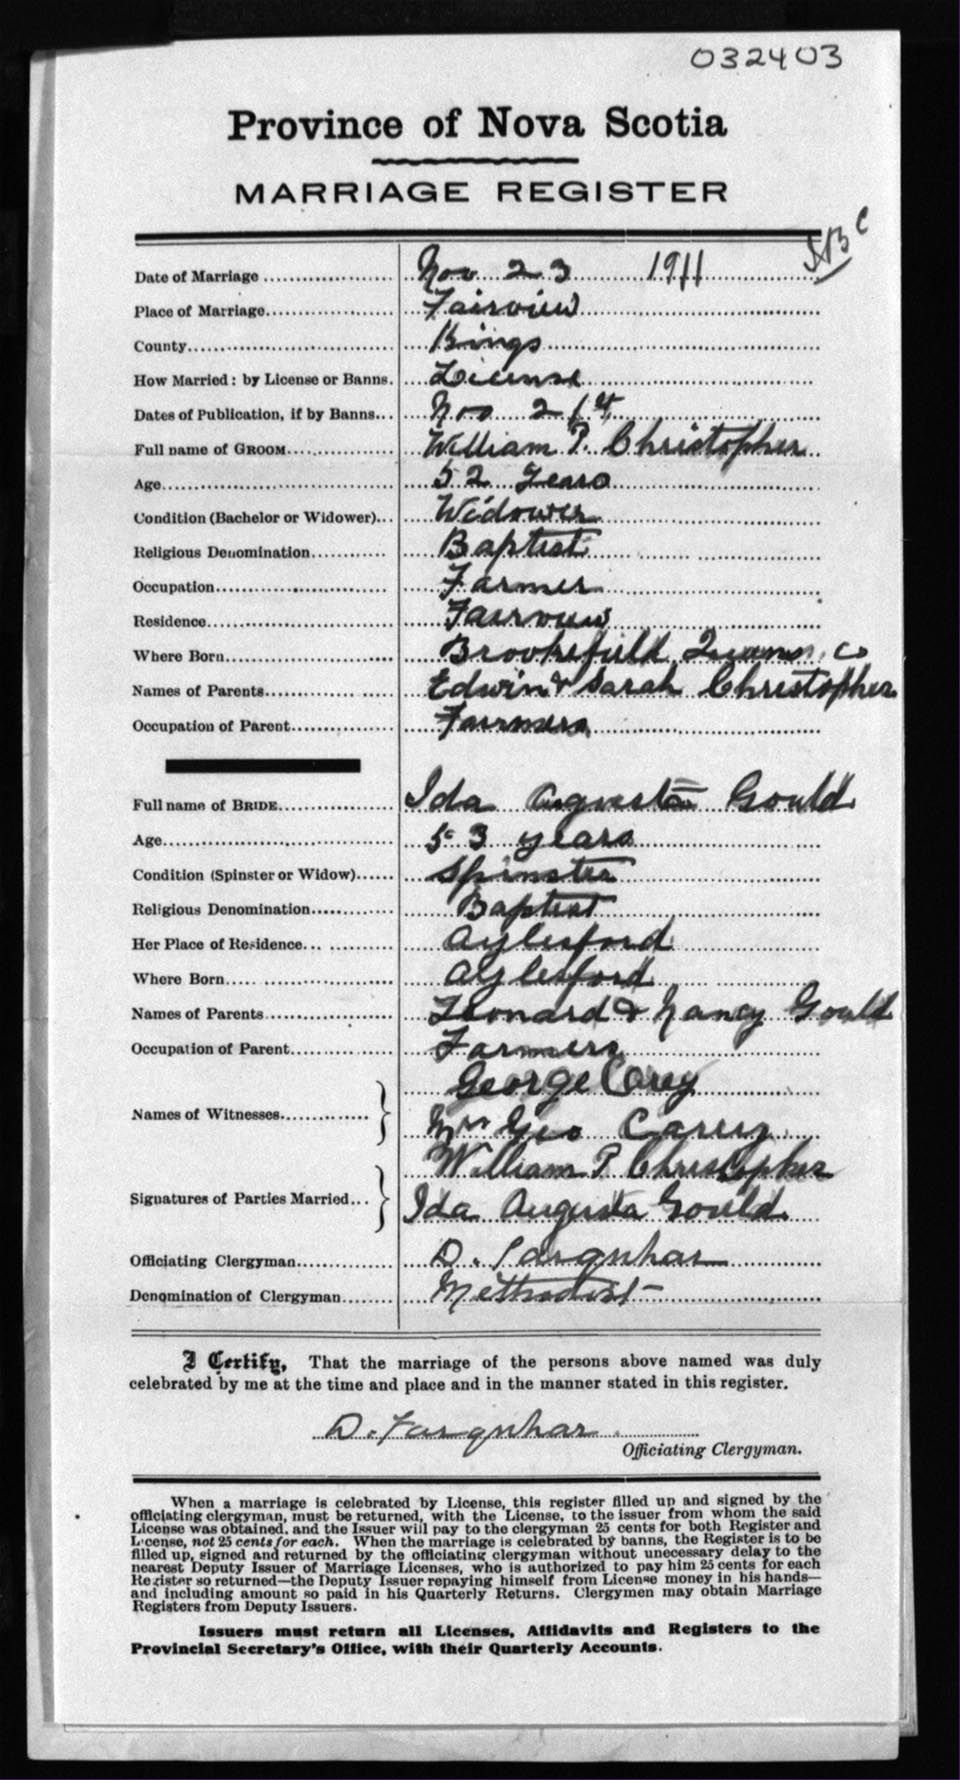 032403
Province of Nova Scotia
MARRIAGE REGISTER
Date of Marriage Nov 23 1911
Place of Marriage Fairview
County Kings
How Married: by License or Banns. License
Dates of Publication, if by Banns Nov 21st
Full name of GROOM William P. Christopher
Age 52 Years
Condition (Bachelor or Widower) Widower
Religious Denomination Baptist
Occupation Farmer
Residence Fairview
Where Born Brookfield Queens Co
Names of Parents Edwin & Sarah Christopher
Occupation of Parent Farmers
Full name of BRIDE Ida Augusta Gould
Age 53 years
Condition (Spinster or Widow) Spinster
Religious Denomination Baptist
Her Place of Residence Aylesford
Where Born Aylesford
Names of Parents Leonard & Nancy Gould
Occupation of Parent Farmers
Names of Witnesses George Corey
Mrs Geo Carey
Signatures of Parties Married William P Christopher
Ida Augusta Gould
Officiating Clergyman D. Farquhar
Denomination of Clergyman Methodist
I Certify, That the marriage of the persons above named was duly
celebrated by me at the time and place and in the manner stated in this register.
D. Farquhar
Officiating Clergyman.
When a marriage is celebrated by License, this register filled up and signed by the
officiating clergyman, must be returned, with the License, to the issuer from whom the said
License was obtained, and the Issuer will pay to the clergyman 25 cents for both Register and
License, not 25 cents for each. When the marriage is celebrated by banns, the Register is to be
filled up, signed and returned by the officiating clergyman without unecessary delay to the
nearest Deputy Issuer of Marriage Licenses, who is authorized to pay him 25 cents for each
Register so returned—the Deputy Issuer repaying himself from License money in his hands—
and including amount so paid in his Quarterly Returns. Clergymen may obtain Marriage
Registers from Deputy Issuers.
Issuers must return all Licenses, Affidavits and Registers to the
Provincial Secretary's Office, with their Quarterly Accounts.